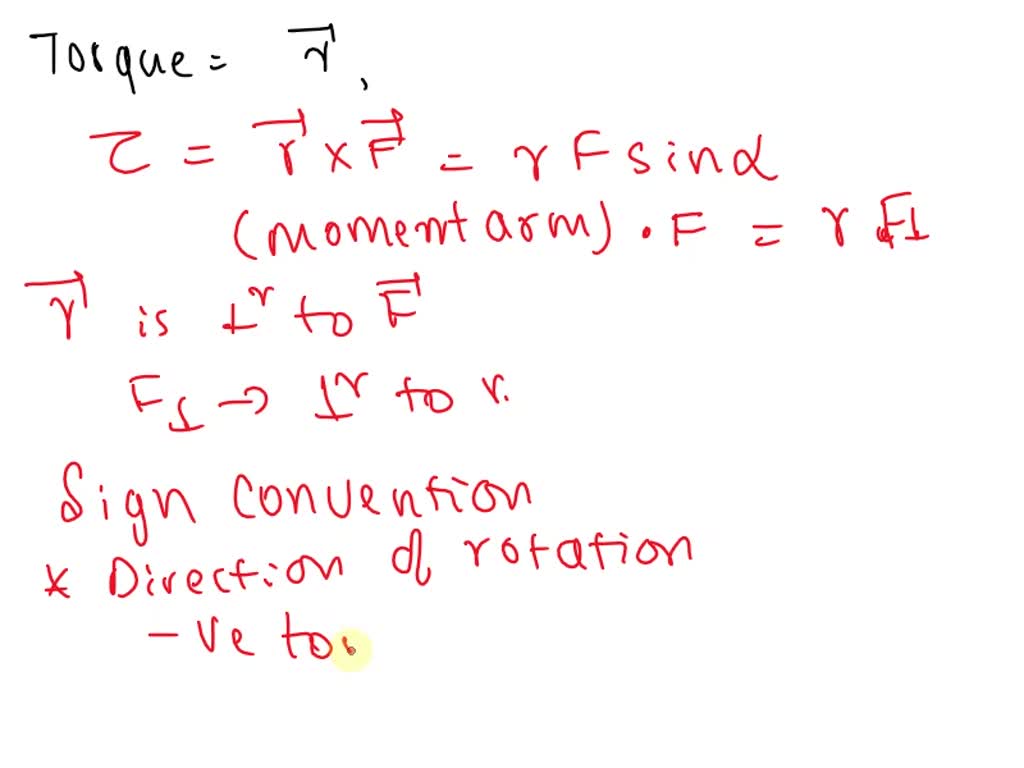 Torque = r⃗,
τ = r⃗ × F⃗ = r F sin α
(moment arm) · F = r F⊥
r⃗ is ⊥r to F⃗
F⊥ → ⊥r to r.
Sign convention
* Direction of rotation
-ve to